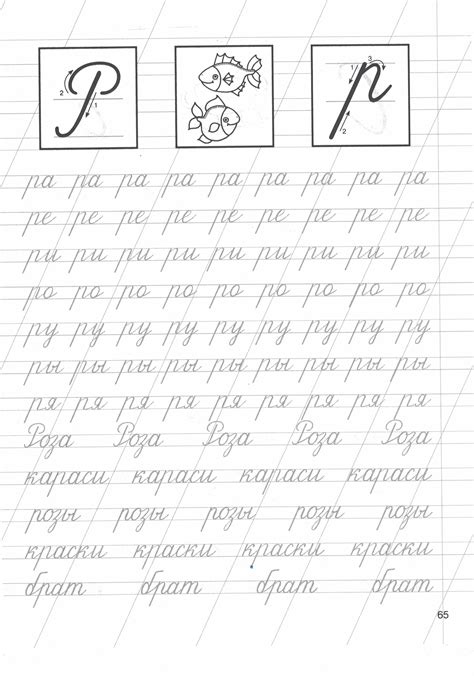 Р 2 1 р 1 3 2
ра ра ра ра ра ра ра ра ра
ре ре ре ре ре ре ре ре ре
ри ри ри ри ри ри ри ри ри
ро ро ро ро ро ро ро ро ро
ру ру ру ру ру ру ру ру ру
ры ры ры ры ры ры ры ры ры
ря ря ря ря ря ря ря ря ря
Роза Роза Роза Роза Роза
караси караси караси караси
розы розы розы розы розы
краски краски краски краски
брат брат брат брат
65